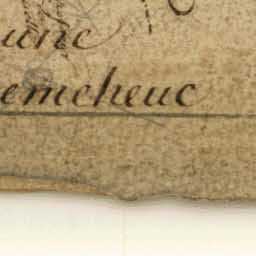 une
emcheuc